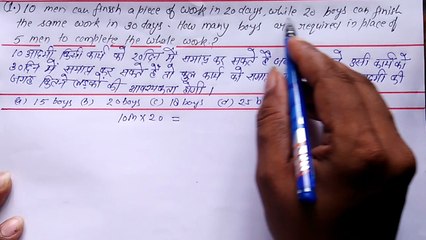 (1.) 10 men can finish a piece of work in 20 days, while 20 boys can finish
the same work in 30 days. How many boys are required in place of
5 men to complete the whole work?
10 आदमी किसी कार्य को 20 दिन में समाप्त कर सकते हैं उसी कार्य को
30 दिन में समाप्त कर सकते हैं तो कुल कार्य को की
जगह कितने लड़कों की आवश्यकता होगी।
(a) 15 boys (b) 20 boys (c) 18 boys (d) 25 b
10M × 20 =